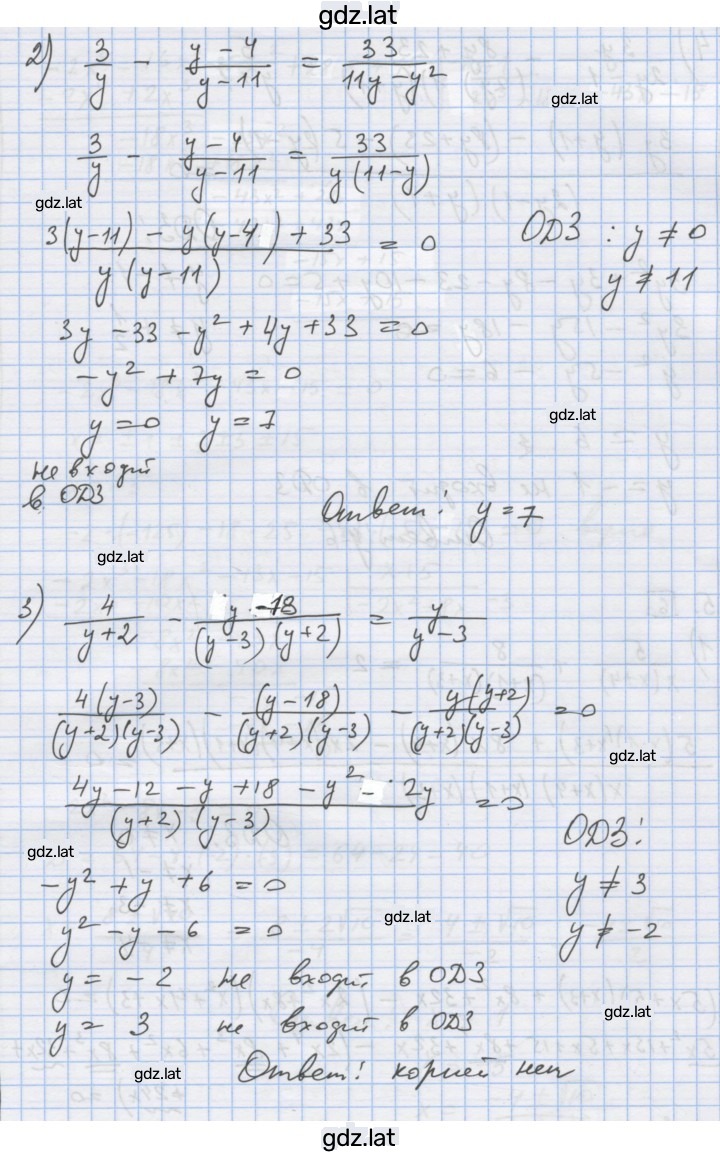 gdz.lat
2) 3/y - (y-4)/(y-11) = 33/(11y-y²)
gdz.lat
3/y - (y-4)/(y-11) = 33/(y(11-y))
gdz.lat
(3(y-11) - y(y-4) + 33)/(y(y-11)) = 0 ОДЗ : y ≠ 0
y ≠ 11
3y - 33 - y² + 4y + 33 = 0
-y² + 7y = 0
gdz.lat
y = 0 y = 7
не входит
в ОДЗ
Ответ: y = 7
gdz.lat
3) 4/(y+2) - (y-18)/((y-3)(y+2)) = y/(y-3)
4(y-3)/((y+2)(y-3)) - (y-18)/((y+2)(y-3)) - y(y+2)/((y+2)(y-3)) = 0
gdz.lat
(4y-12-y+18-y²-2y)/((y+2)(y-3)) = 0
ОДЗ:
gdz.lat
-y² + y + 6 = 0 y ≠ 3
gdz.lat
y² - y - 6 = 0 y ≠ -2
y = -2 не входит в ОДЗ
gdz.lat
y = 3 не входит в ОДЗ
gdz.lat
Ответ: корней нет
gdz.lat